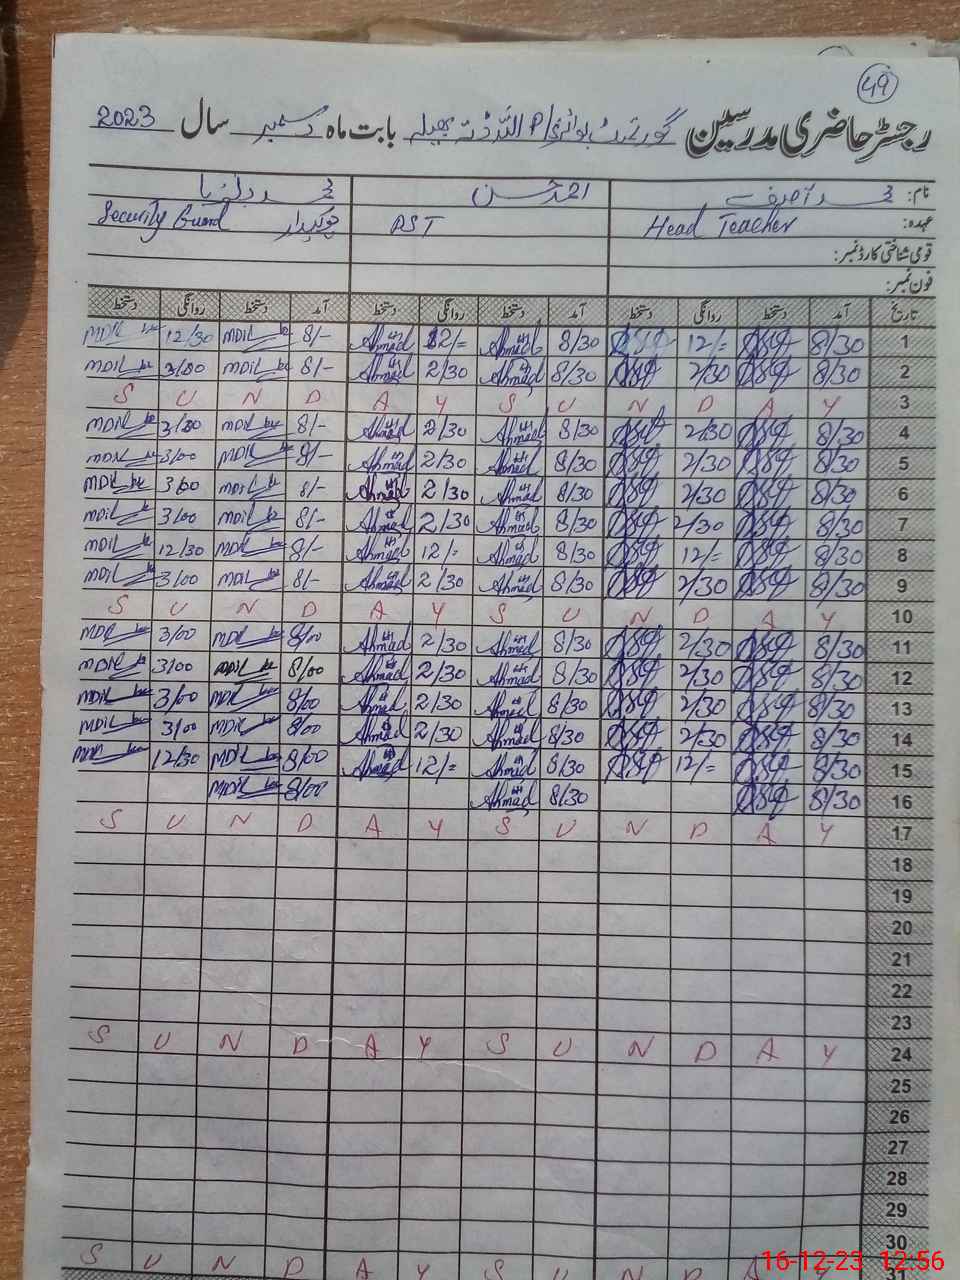 49
رجسٹر حاضری مدرسین گورنمنٹ بوائز P/ اللہ ڈتہ بھیلہ بابت ماہ دسمبر سال 2023
نام: محمد آصف احمد حسن محمد
عہدہ: Head Teacher PST چوکیدار Security Guard
قومی شناختی کارڈ نمبر:
فون نمبر:
تاریخ آمد دستخط روانگی دستخط آمد دستخط روانگی دستخط آمد دستخط روانگی دستخط
1 8/30 12/= 8/30 Ahmad 12/= Ahmad 8/- MDIL 12/30 MDIL
2 8/30 2/30 8/30 Ahmad 2/30 Ahmad 8/- MDIL 3/00 MDIL
3 S U N D A Y S U N D A Y
4 8/30 2/30 8/30 Ahmad 2/30 Ahmad 8/- MDIL 3/00 MDIL
5 8/30 2/30 8/30 Ahmad 2/30 Ahmad 8/- MDIL 3/00 MDIL
6 8/30 2/30 8/30 Ahmad 2/30 Ahmad 8/- MDIL 3/00 MDIL
7 8/30 2/30 8/30 Ahmad 2/30 Ahmad 8/- MDIL 3/00 MDIL
8 8/30 12/= 8/30 Ahmad 12/= Ahmad 8/- MDIL 12/30 MDIL
9 8/30 2/30 8/30 Ahmad 2/30 Ahmad 8/- MDIL 3/00 MDIL
10 S U N D A Y S U N D A Y
11 8/30 2/30 8/30 Ahmad 2/30 Ahmad 8/00 MDIL 3/00 MDIL
12 8/30 2/30 8/30 Ahmad 2/30 Ahmad 8/00 MDIL 3/00 MDIL
13 8/30 2/30 8/30 Ahmad 2/30 Ahmad 8/00 MDIL 3/00 MDIL
14 8/30 2/30 8/30 Ahmad 2/30 Ahmad 8/00 MDIL 3/00 MDIL
15 8/30 12/= 8/30 Ahmad 12/= Ahmad 8/00 MDIL 12/30 MDIL
16 8/30 8/30 Ahmad 8/00 MDIL
17 S U N D A Y S U N D A Y
18
19
20
21
22
23
24 S U N D A Y S U N D A Y
25
26
27
28
29
30
S U N D A Y S U N D A
16-12-23 12:56